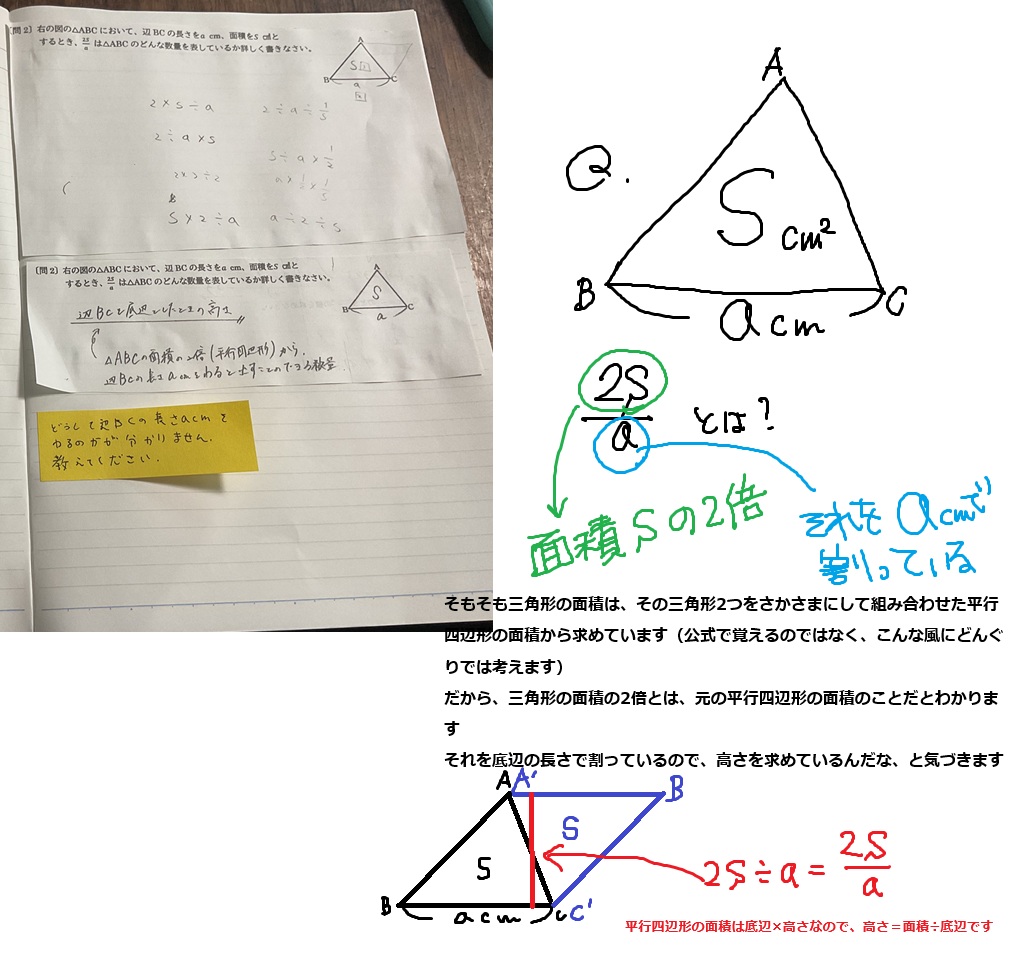 〔問2〕右の図の△ABCにおいて、辺BCの長さをa cm、面積をS ㎠と
するとき、2S/a は△ABCのどんな数量を表しているか詳しく書きなさい。
A
S
B a C
2×S÷a
2÷a÷1/S
2÷a×S
S÷a×1/2
2×S÷2
a×1/2×1/S
S×2÷a
a÷2÷S
〔問2〕右の図の△ABCにおいて、辺BCの長さをa cm、面積をS ㎠と
するとき、2S/a は△ABCのどんな数量を表しているか詳しく書きなさい。
A
S
B a C
辺BCを底辺としたときの高さ
△ABCの面積の2倍(平行四辺形)から、
辺BCの長さacmをわると出すことのできる数量
どうして辺BCの長さacmを
わるのかが分かりません。
教えてください。
Q.
A
S cm²
B C
a cm
2S/a とは?
面積Sの2倍
それをacmで
割っている
そもそも三角形の面積は、その三角形2つをさかさまにして組み合わせた平行
四辺形の面積から求めています（公式で覚えるのではなく、こんな風にどんぐ
りでは考えます）
だから、三角形の面積の2倍とは、元の平行四辺形の面積のことだとわかりま
す
それを底辺の長さで割っているので、高さを求めているんだな、と気づきます
A A' B
S
S
2S÷a=2S/a
B a cm C C'
平行四辺形の面積は底辺×高さなので、高さ＝面積÷底辺です